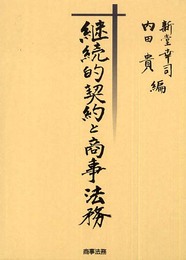 新堂幸司
内田 貴 編
継続的契約と商事法務
商事法務